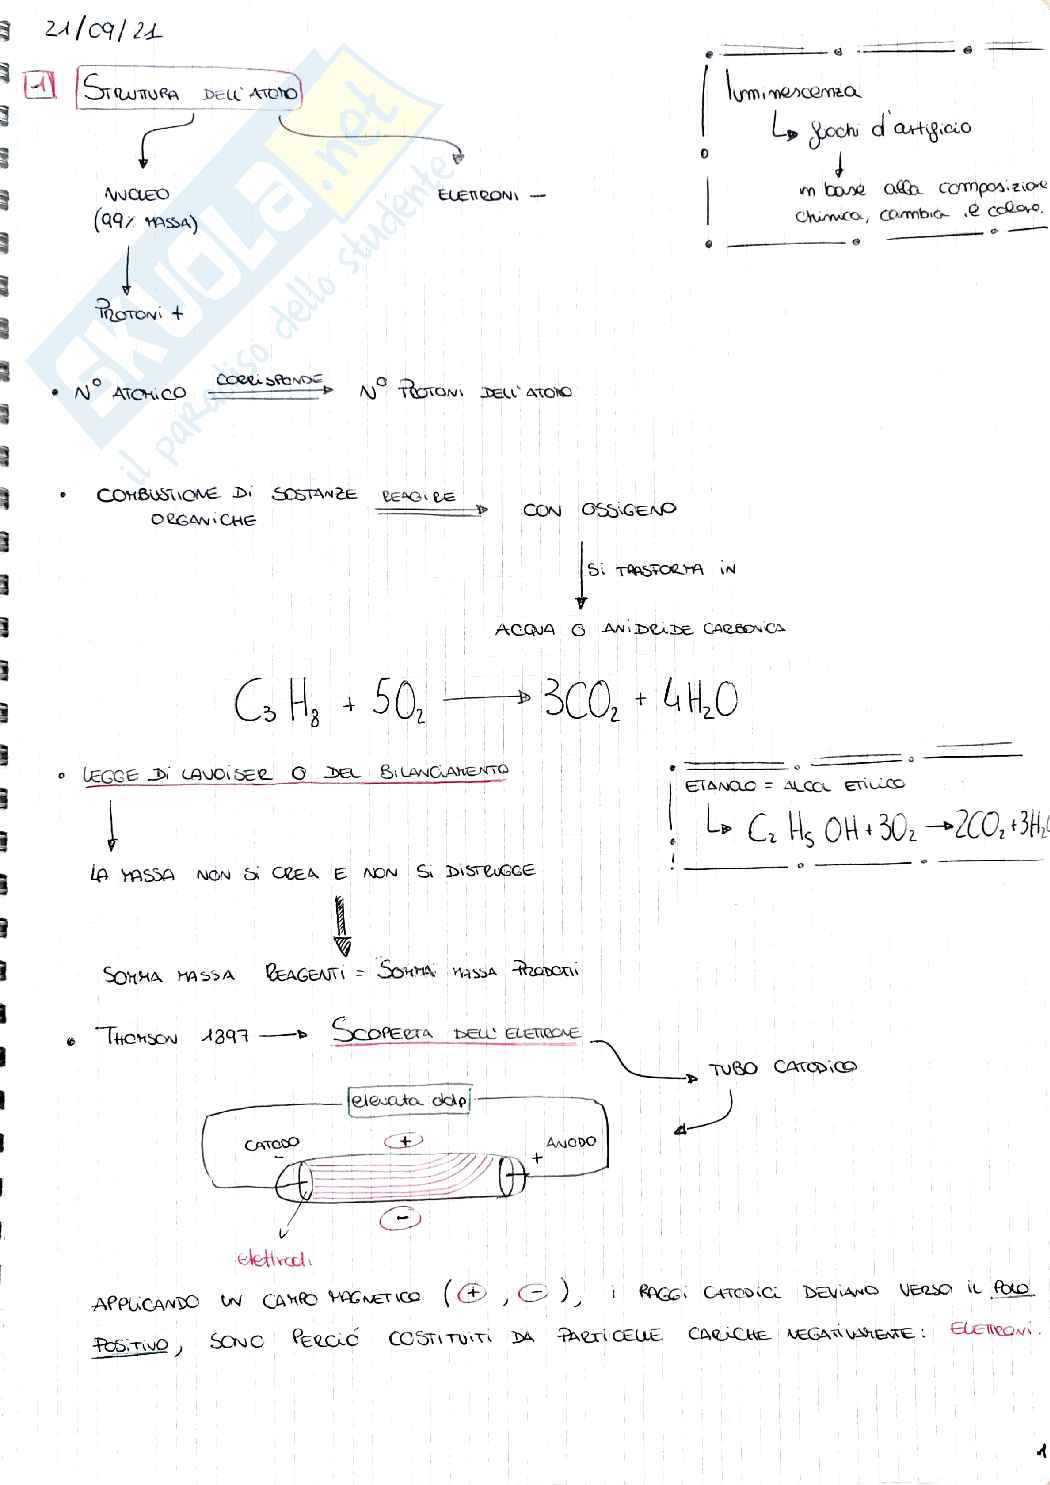 21/09/21
1 STRUTTURA DELL'ATOMO
luminescenza
fuochi d'artificio
in base alla composizione
chimica, cambia il colore.
NUCLEO
(99% MASSA)
ELETTRONI -
PROTONI +
• N° ATOMICO CORRISPONDE N° PROTONI DELL'ATOMO
• COMBUSTIONE DI SOSTANZE REAGIRE CON OSSIGENO
ORGANICHE
SI TRASFORMA IN
ACQUA O ANIDRIDE CARBONICA
C₃H₈ + 5O₂ → 3CO₂ + 4H₂O
• LEGGE DI LAVOISER O DEL BILANCIAMENTO
ETANOLO = ALCOL ETILICO
C₂H₅OH + 3O₂ → 2CO₂ + 3H₂O
LA MASSA NON SI CREA E NON SI DISTRUGGE
SOMMA MASSA REAGENTI = SOMMA MASSA PRODOTTI
• THOMSON 1897 → SCOPERTA DELL'ELETTRONE
TUBO CATODICO
elevata ddp
CATODO - + ANODO +
-
elettrodi
APPLICANDO UN CAMPO MAGNETICO (+, -), I RAGGI CATODICI DEVIANO VERSO IL POLO
POSITIVO, SONO PERCIÒ COSTITUITI DA PARTICELLE CARICHE NEGATIVAMENTE: ELETTRONI.
1
SKUOLA.net
il paradiso dello studente